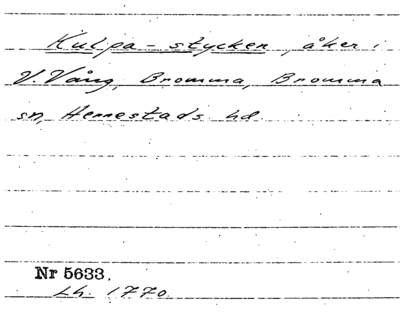 Kulpa-stycken, åker i
V. Vång, Bromma, Bromma
sn, Herrestads hd.
Nr 5633.
Lh. 1770.